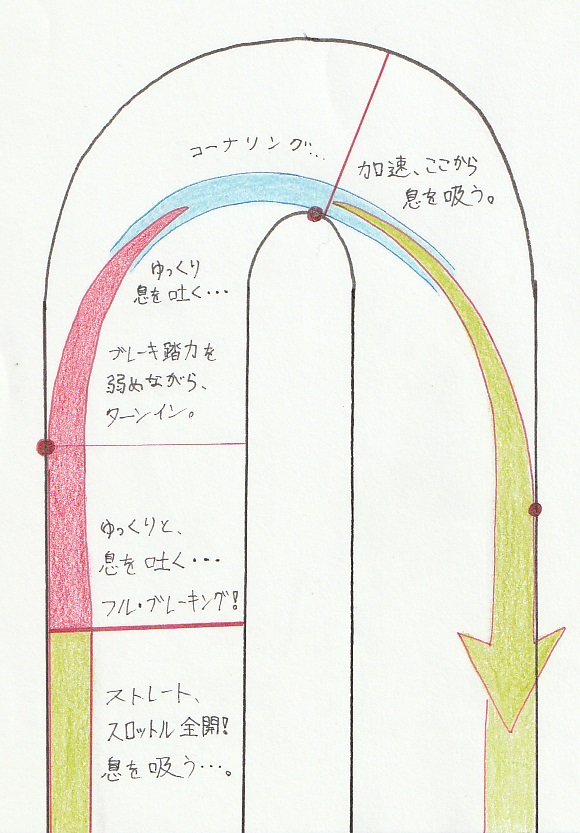 コーナリング...
加速、ここから
息を吸う。
ゆっくり
息を吐く・・・
ブレーキ踏力を
弱めながら、
ターンイン。
ゆっくりと、
息を吐く・・・
フル・ブレーキング!
ストレート、
スロットル全開!
息を吸う・・・。